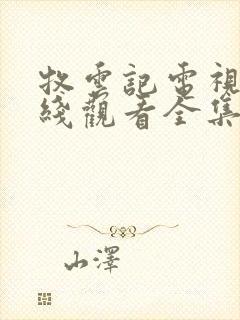 牧雲記電視
綫觀看全集
山澤